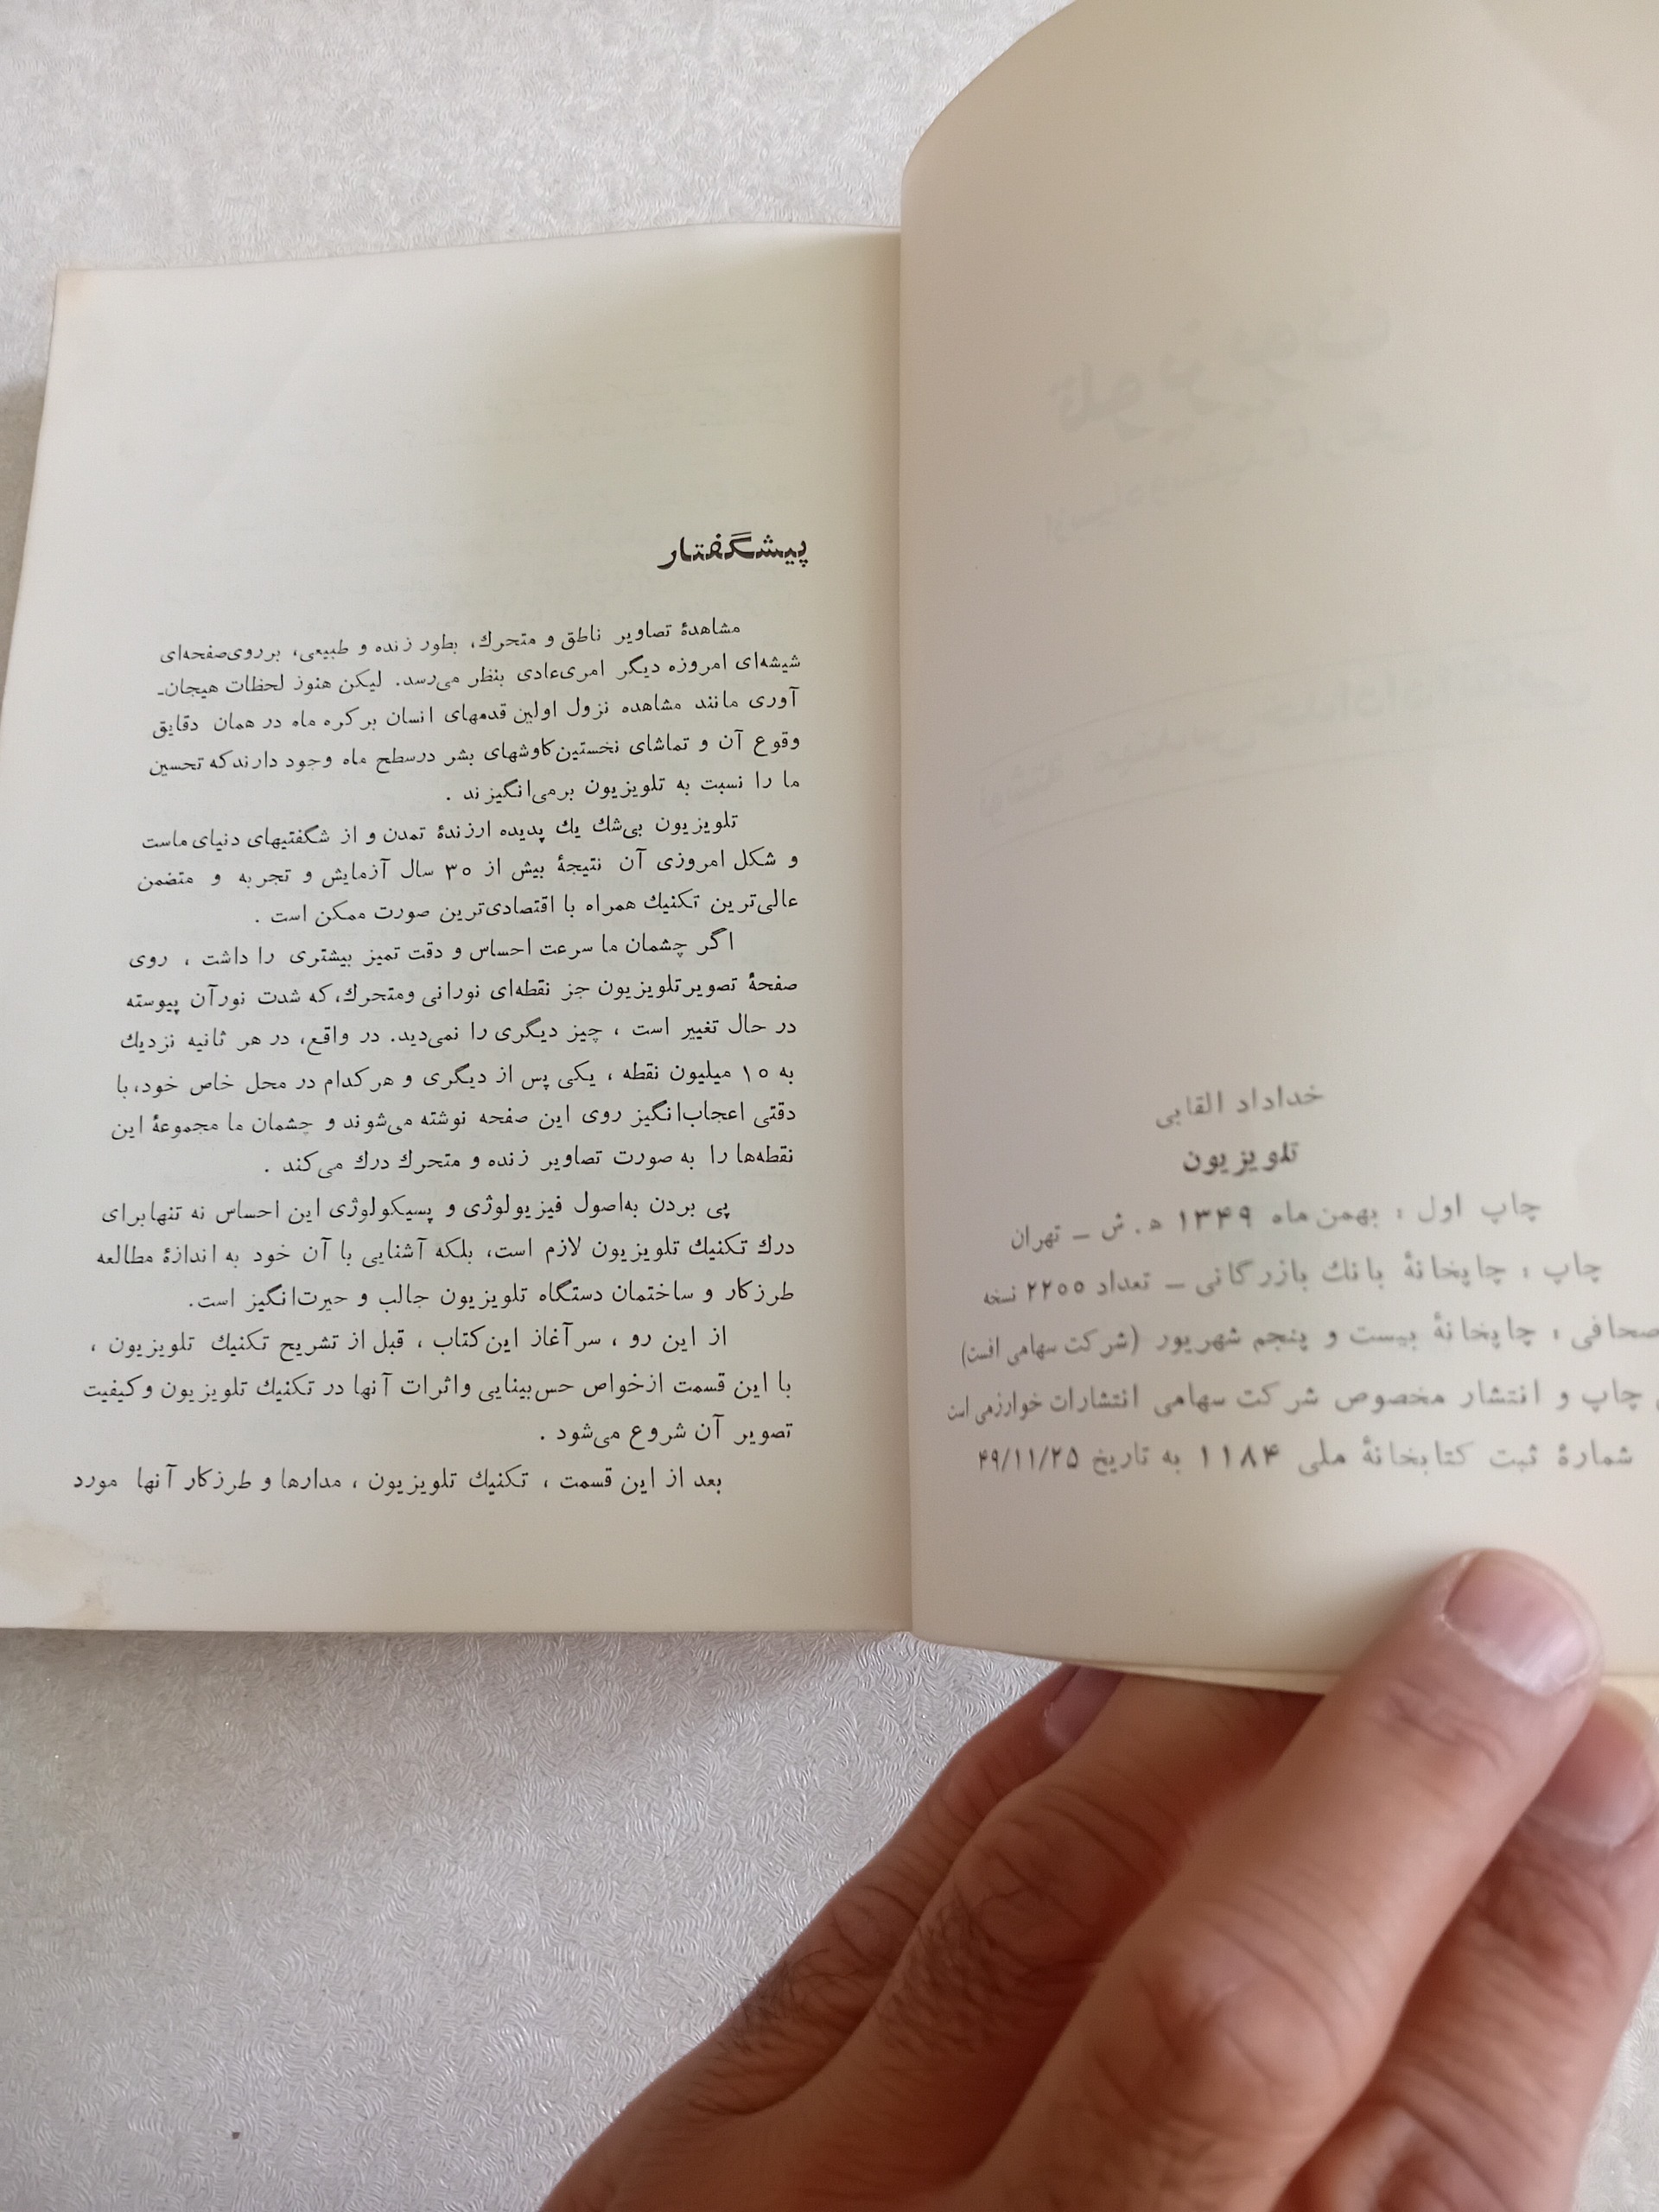 خداداد القابی
تلویزیون
چاپ اول : بهمن ماه ۱۳۴۹ ه. ش – تهران
چاپ : چاپخانهٔ بانك بازرگانی – تعداد ۲۲۰۰ نسخه
صحافی : چاپخانهٔ بیست و پنجم شهریور (شرکت سهامی افست)
چاپ و انتشار مخصوص شرکت سهامی انتشارات خوارزمی است
شمارهٔ ثبت کتابخانهٔ ملی ۱۱۸۴ به تاریخ ۴۹/۱۱/۲۵
پیشگفتار
مشاهدهٔ تصاویر ناطق و متحرك، بطور زنده و طبیعی، بر روی صفحه‌ای
شیشه‌ای امروزه دیگر امری عادی بنظر می‌رسد. لیکن هنوز لحظات هیجان-
آوری مانند مشاهده نزول اولین قدمهای انسان بر کره ماه در همان دقایق
وقوع آن و تماشای نخستین کاوشهای بشر در سطح ماه وجود دارند که تحسین
ما را نسبت به تلویزیون برمی‌انگیزند .
تلویزیون بی‌شك یك پدیده ارزندهٔ تمدن و از شگفتیهای دنیای ماست
و شکل امروزی آن نتیجهٔ بیش از ۳۰ سال آزمایش و تجربه و متضمن
عالی‌ترین تکنیك همراه با اقتصادی‌ترین صورت ممکن است .
اگر چشمان ما سرعت احساس و دقت تمیز بیشتری را داشت ، روی
صفحهٔ تصویر تلویزیون جز نقطه‌ای نورانی ومتحرك، که شدت نورآن پیوسته
در حال تغییر است ، چیز دیگری را نمی‌دید. در واقع، در هر ثانیه نزدیك
به ۱۰ میلیون نقطه ، یکی پس از دیگری و هر کدام در محل خاص خود، با
دقتی اعجاب‌انگیز روی این صفحه نوشته می‌شوند و چشمان ما مجموعهٔ این
نقطه‌ها را به صورت تصاویر زنده و متحرك درك می‌کند .
پی بردن به‌اصول فیزیولوژی و پسیکولوژی این احساس نه تنها برای
درك تکنیك تلویزیون لازم است، بلکه آشنایی با آن خود به اندازهٔ مطالعه
طرزکار و ساختمان دستگاه تلویزیون جالب و حیرت‌انگیز است.
از این رو ، سرآغاز این کتاب ، قبل از تشریح تکنیك تلویزیون ،
با این قسمت ازخواص حس بینایی واثرات آنها در تکنیك تلویزیون وکیفیت
تصویر آن شروع می‌شود .
بعد از این قسمت ، تکنیك تلویزیون ، مدارها و طرزکار آنها مورد